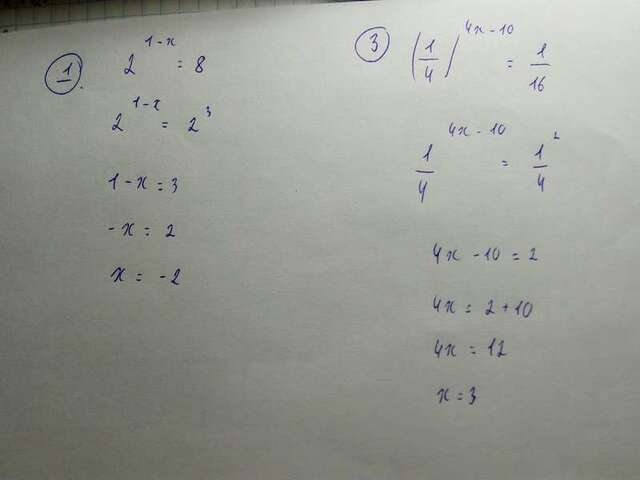 1. 2^(1-x) = 8
2^(1-x) = 2^3
1-x = 3
-x = 2
x = -2
3 (1/4)^(4x-10) = 1/16
1/4^(4x-10) = 1/4^2
4x - 10 = 2
4x = 2+10
4x = 12
x = 3